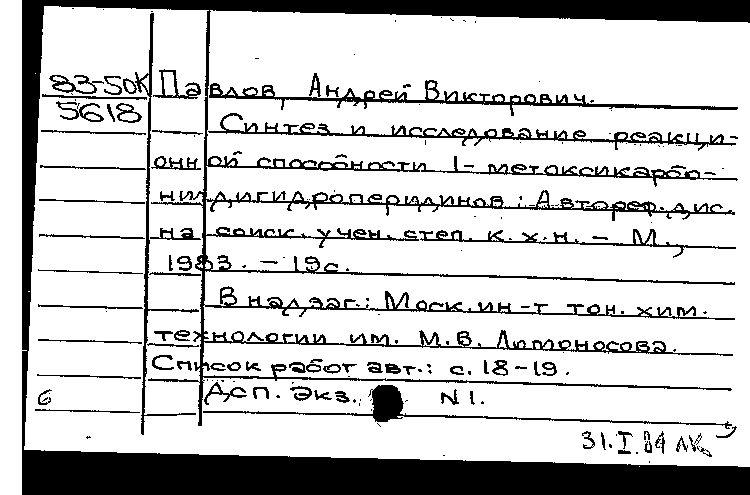 83-50К Павлов, Андрей Викторович.
5618
Синтез и исследование реакци-
онной способности 1-метоксикарбо-
нилдигидроперидинов: Автореф. дис.
на соиск. учен. степ. к.х.н. - М.,
1983. - 19с.
В надзаг.: Моск. ин-т тон. хим.
технологии им. М.В. Ломоносова.
Список работ авт.: с. 18-19.
6 Дсп. Экз. N1.
31.I.84